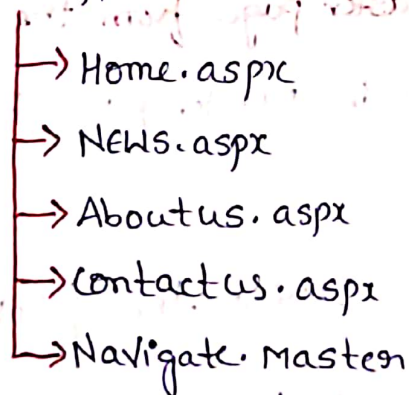 → Home.aspx
→ NEWS.aspx
→ Aboutus.aspx
→ Contactus.aspx
→ Navigate.Master